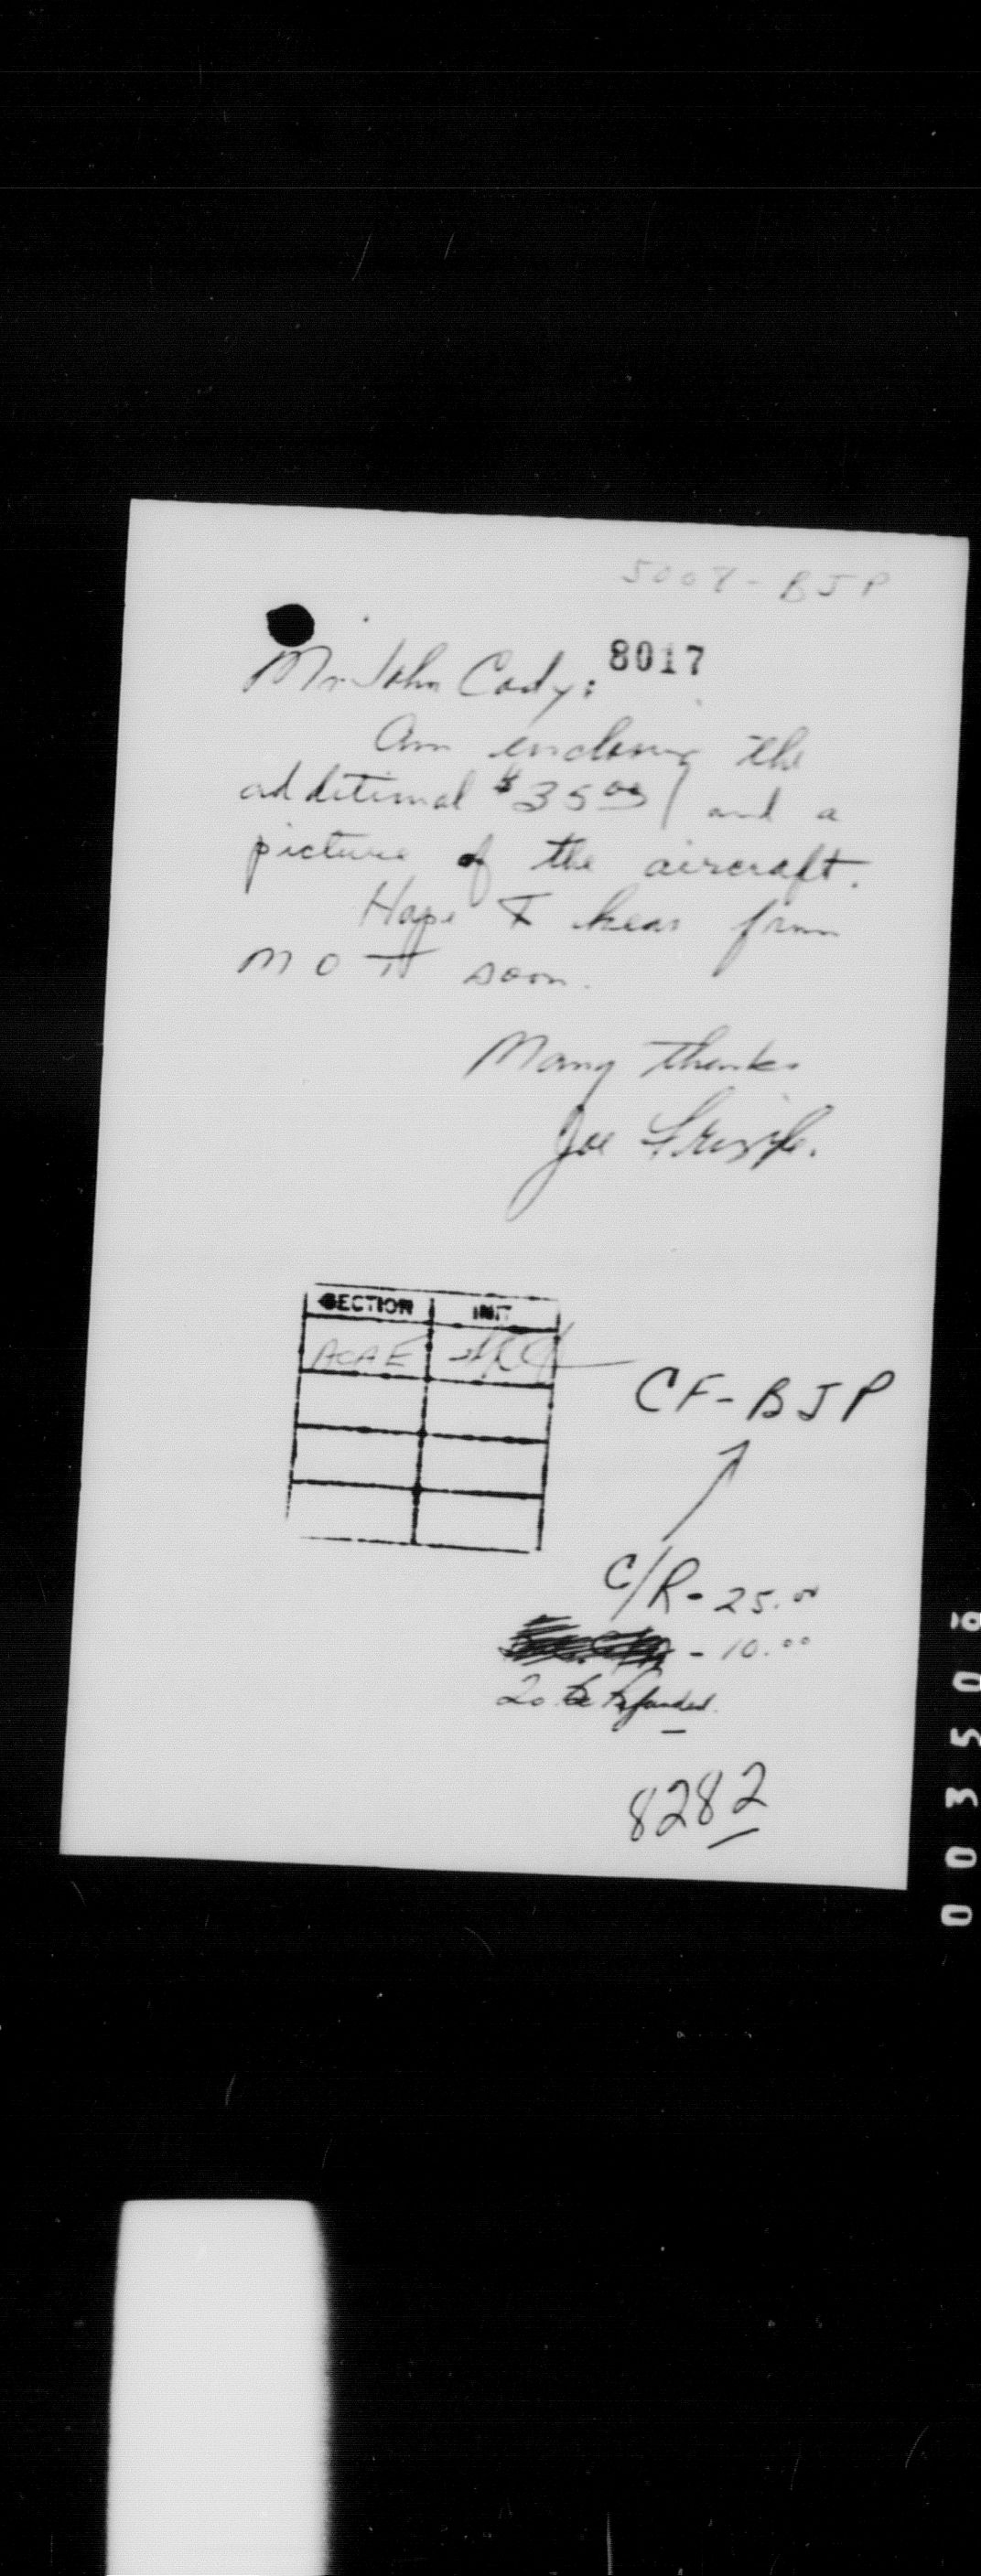 5008-BJP
8017
Mr. John Cody:
Am enclosing the
additional $35.00 and a
picture of the aircraft.
Hope I hear from
MOT soon.
Many thanks
Joe
SECTION INIT
ACAE
CF-BJP
C/R - 25.00
- 10.00
To be refunded.
8282